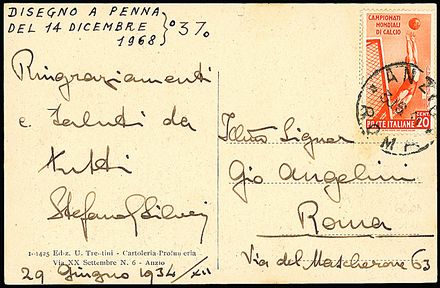 DISEGNO A PENNA
DEL 14 DICEMBRE
1968
37
CAMPIONATI
MONDIALI
DI CALCIO
CENT
20
POSTE ITALIANE
ANZIO
ROMA
Ringraziamenti
e saluti da
tutti
Stefano
Illmo Signor
Gio Angelini
Roma
Via del Mascherone 63
1-1425 Ediz. U. Trentini - Cartoleria-Profumeria
Via XX Settembre N. 6 - Anzio
29 Giugno 1934/XII